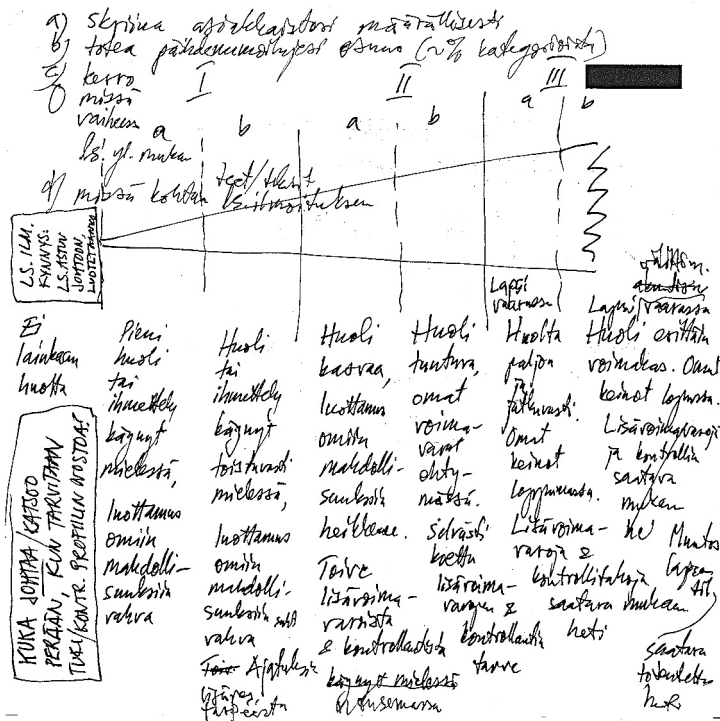 a) skriinaa asiakkaistosi määrällisesti
b) totea päihdenumoilujesi osuus (~% kategorioista)
c) kerro
missä
vaiheessa
ls. yl. mukaan
d) missä kohtaa teet/tekisit
lsilmoituksen
I
II
III
a
b
a
b
a
b
LS. ILM.
KYNNYS:
LS. ASTUU
JOHTOON,
Ei
lainkaan
huolta
Pieni
huoli
tai
ihmettely
käynyt
mielessä,
luottamus
omiin
mahdolli-
suuksiin
vahva
Huoli
tai
ihmettely
käynyt
toistuvasti
mielessä,
luottamus
omiin
mahdolli-
suuksiin
vahva
Ajatuksia
lisävoi
tarpeesta
Huoli
kasvaa,
luottamus
omiin
mahdolli-
suuksiin
heikkenee.
Toive
lisävoima-
varoista
& kontrolloinnista
käynyt mielessä
Huoli
tuntuva,
omat
voima-
varat
ehty-
mässä.
Selvästi
koettu
lisävoima-
varojen &
kontrolloinnin
tarve
Lapsi
vaarassa
Huolta
paljon
ja
jatkuvasti.
Omat
keinot
loppumassa.
Lisävoima-
varoja &
kontrollitahoja
saatava mukaan
heti
Lapsi vaarassa
Huoli erittäin
voimakas. Omat
keinot lopussa.
Lisävoimavaroja
ja kontrollia
saatava
mukaan
heti
Muutos
lapsen
til.
saatava
toteutettua
heti
KUKA JOHTAA/KATSOO
PERÄÄN, KUN TARVITAAN
TUKI/KONTR. PROFIILIN NOSTOA?